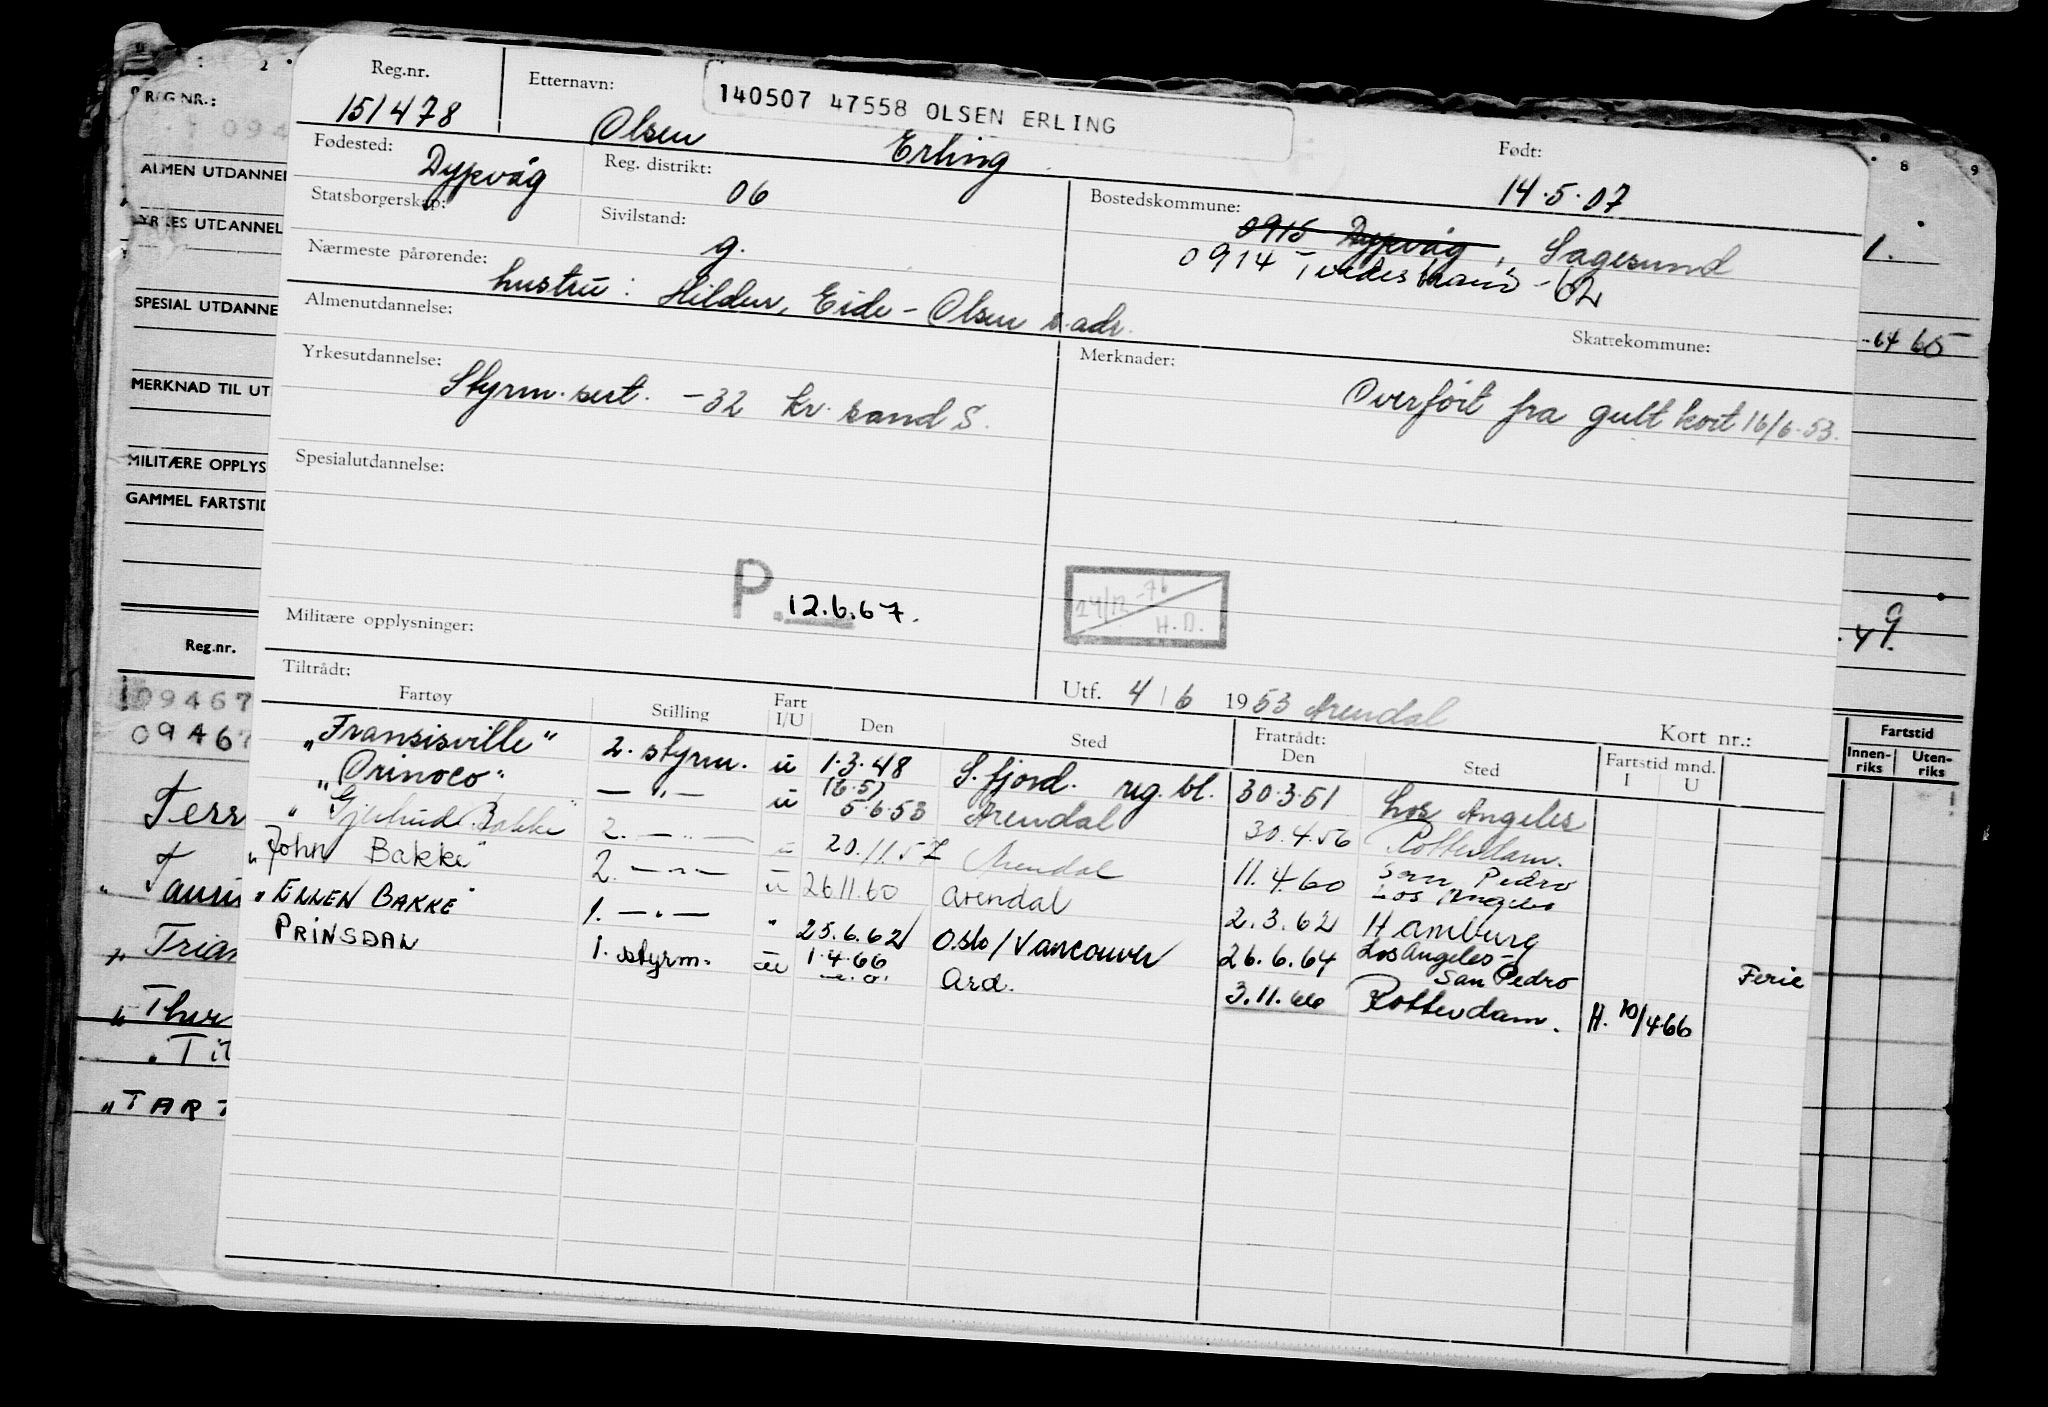 Reg.nr. Etternavn: 140507 47558 OLSEN ERLING
151478 Olsen Erling
Født: 14.5.07
Fødested: Dypvåg Reg. distrikt: 06
Bostedskommune: 0915 Dypvåg, Sagesund
0914 Tvedestrand - 62
Statsborgerskap: Sivilstand: g.
Nærmeste pårørende: hustru: Hildur, Eide - Olsen s. adr.
Almenutdannelse:
Skattekommune:
Yrkesutdannelse: Merknader:
Styrm. sert. -32 kr. sand S.
Overført fra gult kort 16/6-53.
Spesialutdannelse:
P. 12.6.67.
24/12-76
H.D.
Militære opplysninger:
Tiltrådt: Utf. 4/6 1953 Arendal
Fartøy Stilling Fart I/U Den Sted Fratrådt: Den Sted Fartstid mnd. I U Kort nr.:
"Fransisville" 2. styrm. u 1.3.48 S. fjord. reg. bl. 30.3.51 Los Angeles
"Orinoco" — " — u 5.6.53 Arendal 30.4.56 Rotterdam.
" Bakke" 2. — " — u 20.11.57 Arendal 11.4.60 San Pedro Los Angeles
"John Bakke" 2. — " — u 26.11.60 Arendal 2.3.62 Hamburg
"ELLEN BAKKE" 1. — " — " 25.6.62 Oslo/Vancouver 26.6.64 Los Angeles - San Pedro Ferie
PRINSDAL 1. styrm. u 1.4.66 Ard. 3.11.66 Rotterdam. H. 20/4.66
REG.NR.:
094
ALMEN UTDANNEL
YRKES UTDANNEL
SPESIAL UTDANNE
MERKNAD TIL UT
MILITÆRE OPPLYS
GAMMEL FARTSTID
Reg.nr.
109467
09467
Terr
"Trian
"Thor
"Tit
"TART
2
8 9
1.
-64 65
. 49.
Fartstid
Innenriks Utenriks